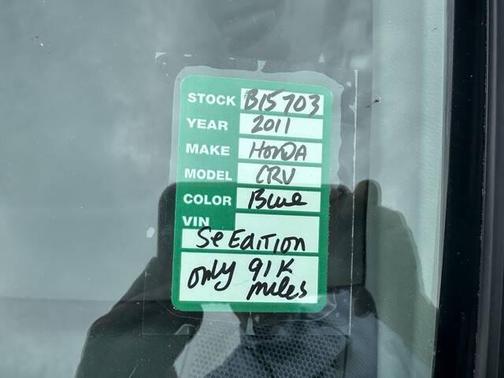 STOCK B15703
YEAR 2011
MAKE HONDA
MODEL CRV
COLOR Blue
VIN
Se EdITION
only 91K
miles